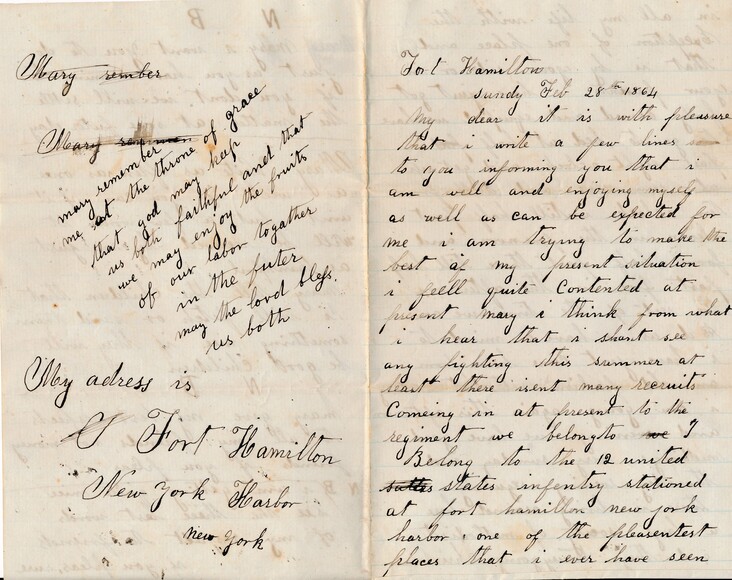 Mary rember
Mary remmen
mary remember
me at the throne of grace
that god may keep
us both faithful and that
we may enjoy the fruits
of our labor together
in the futer
may the lord bless
us both
My adress is
Fort Hamilton
New York Harbor
New York
Fort Hamilton
Sundy Feb 28th 1864
My dear it is with pleasure
that i write a few lines
to you informing you that i
am well and enjoying myself
as well as can be expected for
me i am trying to make the
best of my present situation
i feell quite Contented at
present mary i think from what
i hear that i shant see
any fighting this summer at
least there isent many recruits
Comeing in at present to the
regiment we belong to we I
Belong to the 12 united
states infentry stationed
at fort hamilton new york
harbor one of the pleasentest
places that i ever have seen